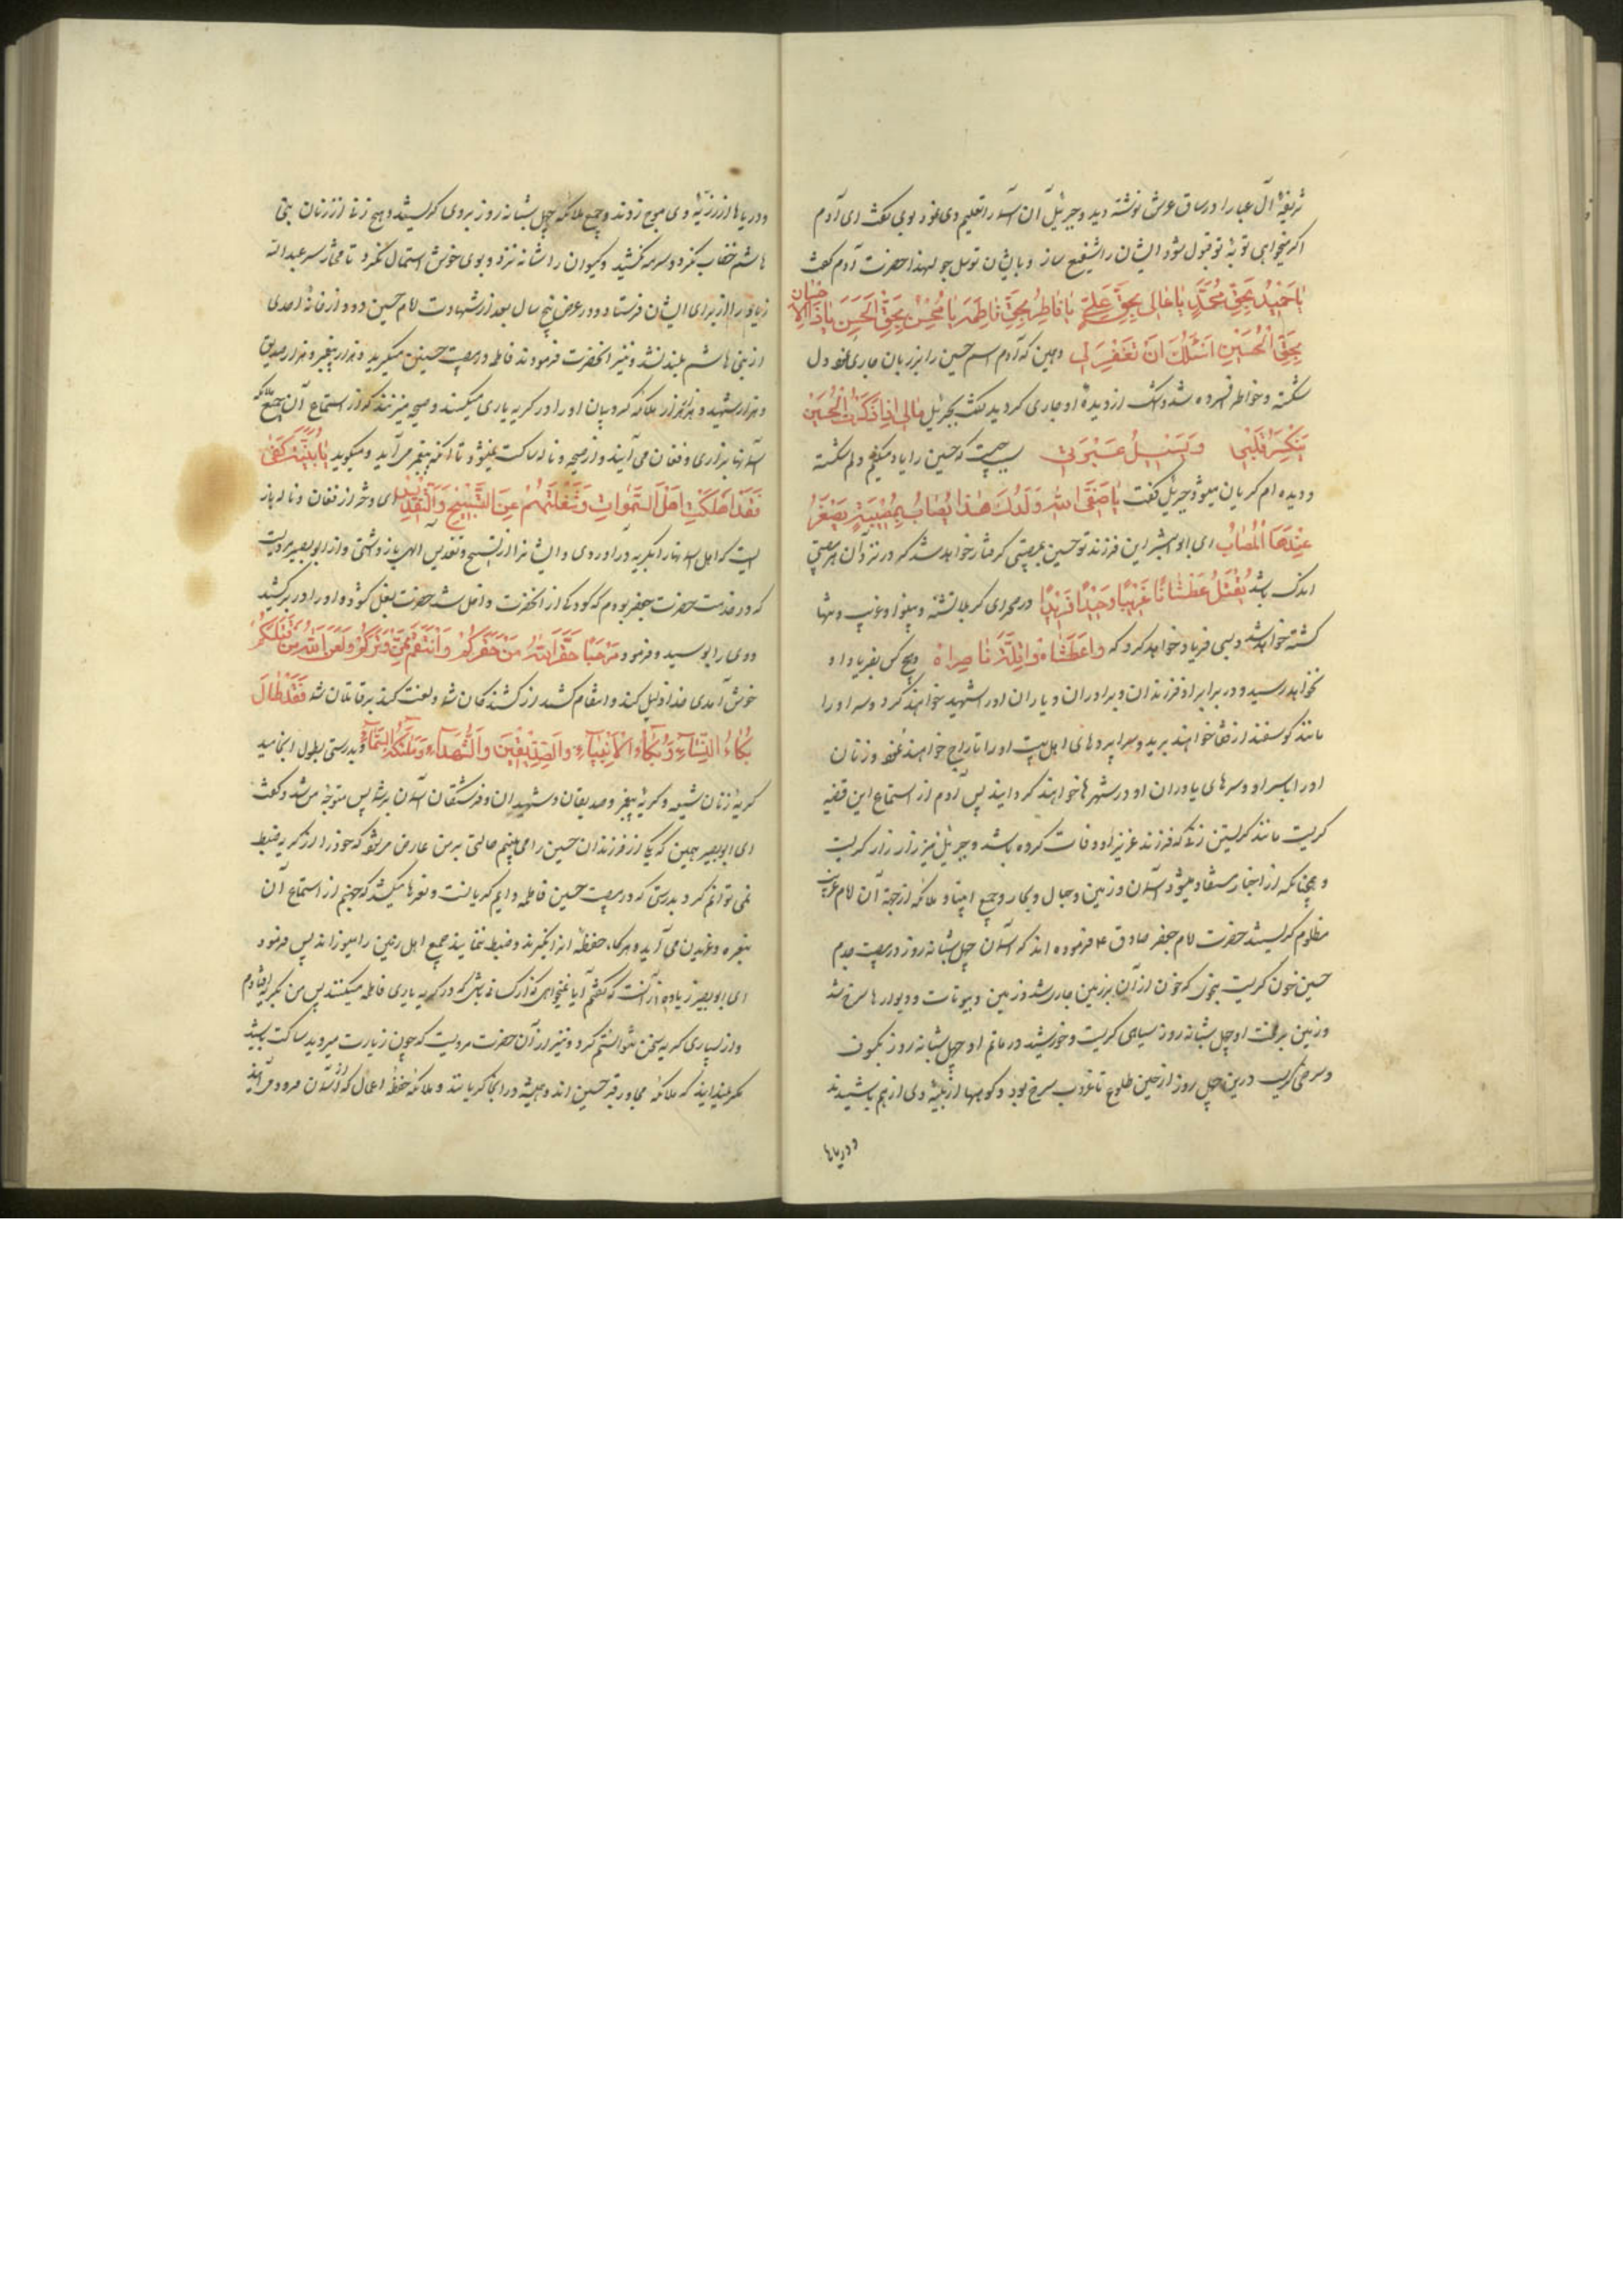 شریفهٔ آل عبا را در ساق عرش نوشته دید و جبرئیل آن اسماء را تعلیم وی نمود بوی گفت ای آدم
اگر میخواهی توبهٔ تو قبول شود ایشان را شفیع ساز و بایشان توسل جو لهذا حضرت آدم گفت
یا حَمیدُ بِحَقِّ مُحَمَّدٍ یا عالی بِحَقِّ عَلِیٍّ یا فاطِرُ بِحَقِّ فاطِمَةَ یا مُحْسِنُ بِحَقِّ الْحَسَنِ یا ذَا الْاِحْسانِ
بِحَقِّ الْحُسَیْنِ اَسْئَلُكَ اَنْ تَغْفِرَ لی و همین که آدم اسم حسین را بر زبان جاری نمود دل
شکسته و خواطر افسرده شد و اشک از دیدهٔ او جاری گردید گفت بجبرئیل مالی اِذا ذَکَرْتُ الْحُسَیْنَ
یَنْکَسِرُ قَلْبی وَ یَسیلُ عَبْرَتی سبب چیست که حسین را یاد میکنم دلم شکسته
و دیده ام گریان میشود جبرئیل گفت یا صَفِیَّ اللهِ وَلَدُكَ هٰذا یُصابُ بِمُصیبَةٍ یَصْغَرُ
عِنْدَهَا الْمَصائِبُ ای ابوالبشر این فرزند تو حسین بمصیبتی گرفتار خواهد شد که در نزد آن هر مصیبتی
اندک باشد یُقْتَلُ عَطْشاناً غَریباً وَحیداً فَریداً در صحرای کربلا تشنه و بینوا و غریب و تنها
کشته خواهد شد و بسی فریاد خواهد کرد که واعَطَشاه واقِلَّةَ ناصِراه و هیچ کس بفریاد او
نخواهد رسید و در برابر او فرزندان و برادران و یاران او را شهید خواهند کرد و سر او را
مانند گوسفند از قفا خواهند برید و سراپرده های اهل بیت او را تاراج خواهند نمود و زنان
او را با سر او و سرهای یاوران او در شهرها خواهند گردانید پس آدم از استماع این قضیه
گریست مانند گریستن زنی که فرزند عزیز او وفات کرده باشد و جبرئیل نیز زار زار گریست
و چنانکه از اخبار مستفاد میشود آسمان و زمین و جبال و بحار و جمیع انبیا و ملائکه از جهة آن امام غریب
مظلوم گریستند حضرت امام جعفر صادق ع فرموده اند که آسمان چهل شبانه روز در مصیبت جدم
حسین خون گریست بنحوی که خون از آن بر زمین جاری شد و زمین و بیوتات و دیوارها سرخ شد
و زمین بر قتل او چهل شبانه روز سیاهی گریست و خورشید در ماتم او چهل شبانه روز بکسوف
و سرخی گریست در این چهل روز از حین طلوع تا غروب سرخ بود و کوهها از بلیهٔ وی از هم پاشیدند
و دریاها
و دریاها از رزیهٔ وی موج زدند و جمیع ملائکه چهل شبانه روز بر وی گریستند و هیچ زنی از زنان بنی
هاشم خضاب نکرد و سرمه نکشید و گیسوان را شانه نزد و بوی خوش استعمال نکرد تا مختار سر عبدالله
زیاد را از برای ایشان فرستاد و در عرض پنج سال بعد از شهادت امام حسین دود از خانهٔ احدی
از بنی هاشم بلند نشد و نیز آنحضرت فرمودند فاطمه در مصیبت حسین میگرید و هزار پیغمبر و هزار صدیق
و هزار شهید و هزار هزار ملائکه کروبیان او را در گریه یاری میکنند و صیحه میزنند که از استماع آن جمیع ملائکه
آسمانها بزاری و فغان می آیند و از صیحه و ناله ساکت نمیشود تا آنکه پیغمبر می آید و میگوید یا بُنَیَّةُ کُفّی
فَقَدْ اَهْلَکْتِ اَهْلَ السَّمٰواتِ وَ شَغَلْتِهِمْ عَنِ التَّسْبیحِ وَ التَّقْدیسِ ای دختر از فغان و ناله باز
ایست که اهل آسمانها را بگریه درآوردی و ایشان را از تسبیح و تقدیس الهی باز داشتی و از ابوبصیر مرویست
که در خدمت حضرت جعفر بودم که کودکی از آنحضرت داخل شد حضرت بغل گشود و او را در بر کشید
و وی را بوسید و فرمود مَرْحَباً حَقَّرَ اللهُ مَنْ حَقَّرَکُمْ وَ انْتَقَمَ مِمَّنْ وَتَرَکُمْ وَ لَعَنَ اللهُ مَنْ قَتَلَکُمْ
خوش آمدی خدا ذلیل کند و انتقام کشد از کشندگان شما و لعنت کند بر قاتلان شما فَقَدْ طالَ
بُکاءُ النِّساءِ وَ بُکاءُ الْاَنْبِیاءِ وَ الصِّدّیقینَ وَ الشُّهَداءِ وَ مَلٰئِکَةِ السَّماءِ و بدرستی بطول انجامید
گریهٔ زنان شیعه و گریهٔ پیغمبر و صدیقان و شهیدان و فرشتگان آسمان بر شما پس متوجه من شد و گفت
ای ابوبصیر همین که یکی از فرزندان حسین را می بینم حالتی بر من عارض میشود که خود را از گریه ضبط
نمی توانم کرد بدرستی که در مصیبت حسین فاطمه دایم گریانست و نعرها میکشد که جهنم از استماع آن
بنعره و غریدن می آید و هر گاه حفظهٔ او را نگیرند و ضبط ننمایند جمیع اهل زمین را میسوزاند پس فرمود
ای ابوبصیر زیاده از آنست که گفتم آیا نمیخواهی که از کسانی باشی که در گریه یاری فاطمه میکنند پس من بگریه افتادم
و از بسیاری گریه سخن نتوانستم کرد و نیز از آن حضرت مرویست که چون زیارت میروید ساکت باشید
مگر نمیدانید که ملائکه مجاور قبر حسین اند و همیشه در آنجا گریانند و ملائکهٔ حفظهٔ اعمال که از آسمان فرود می آیند